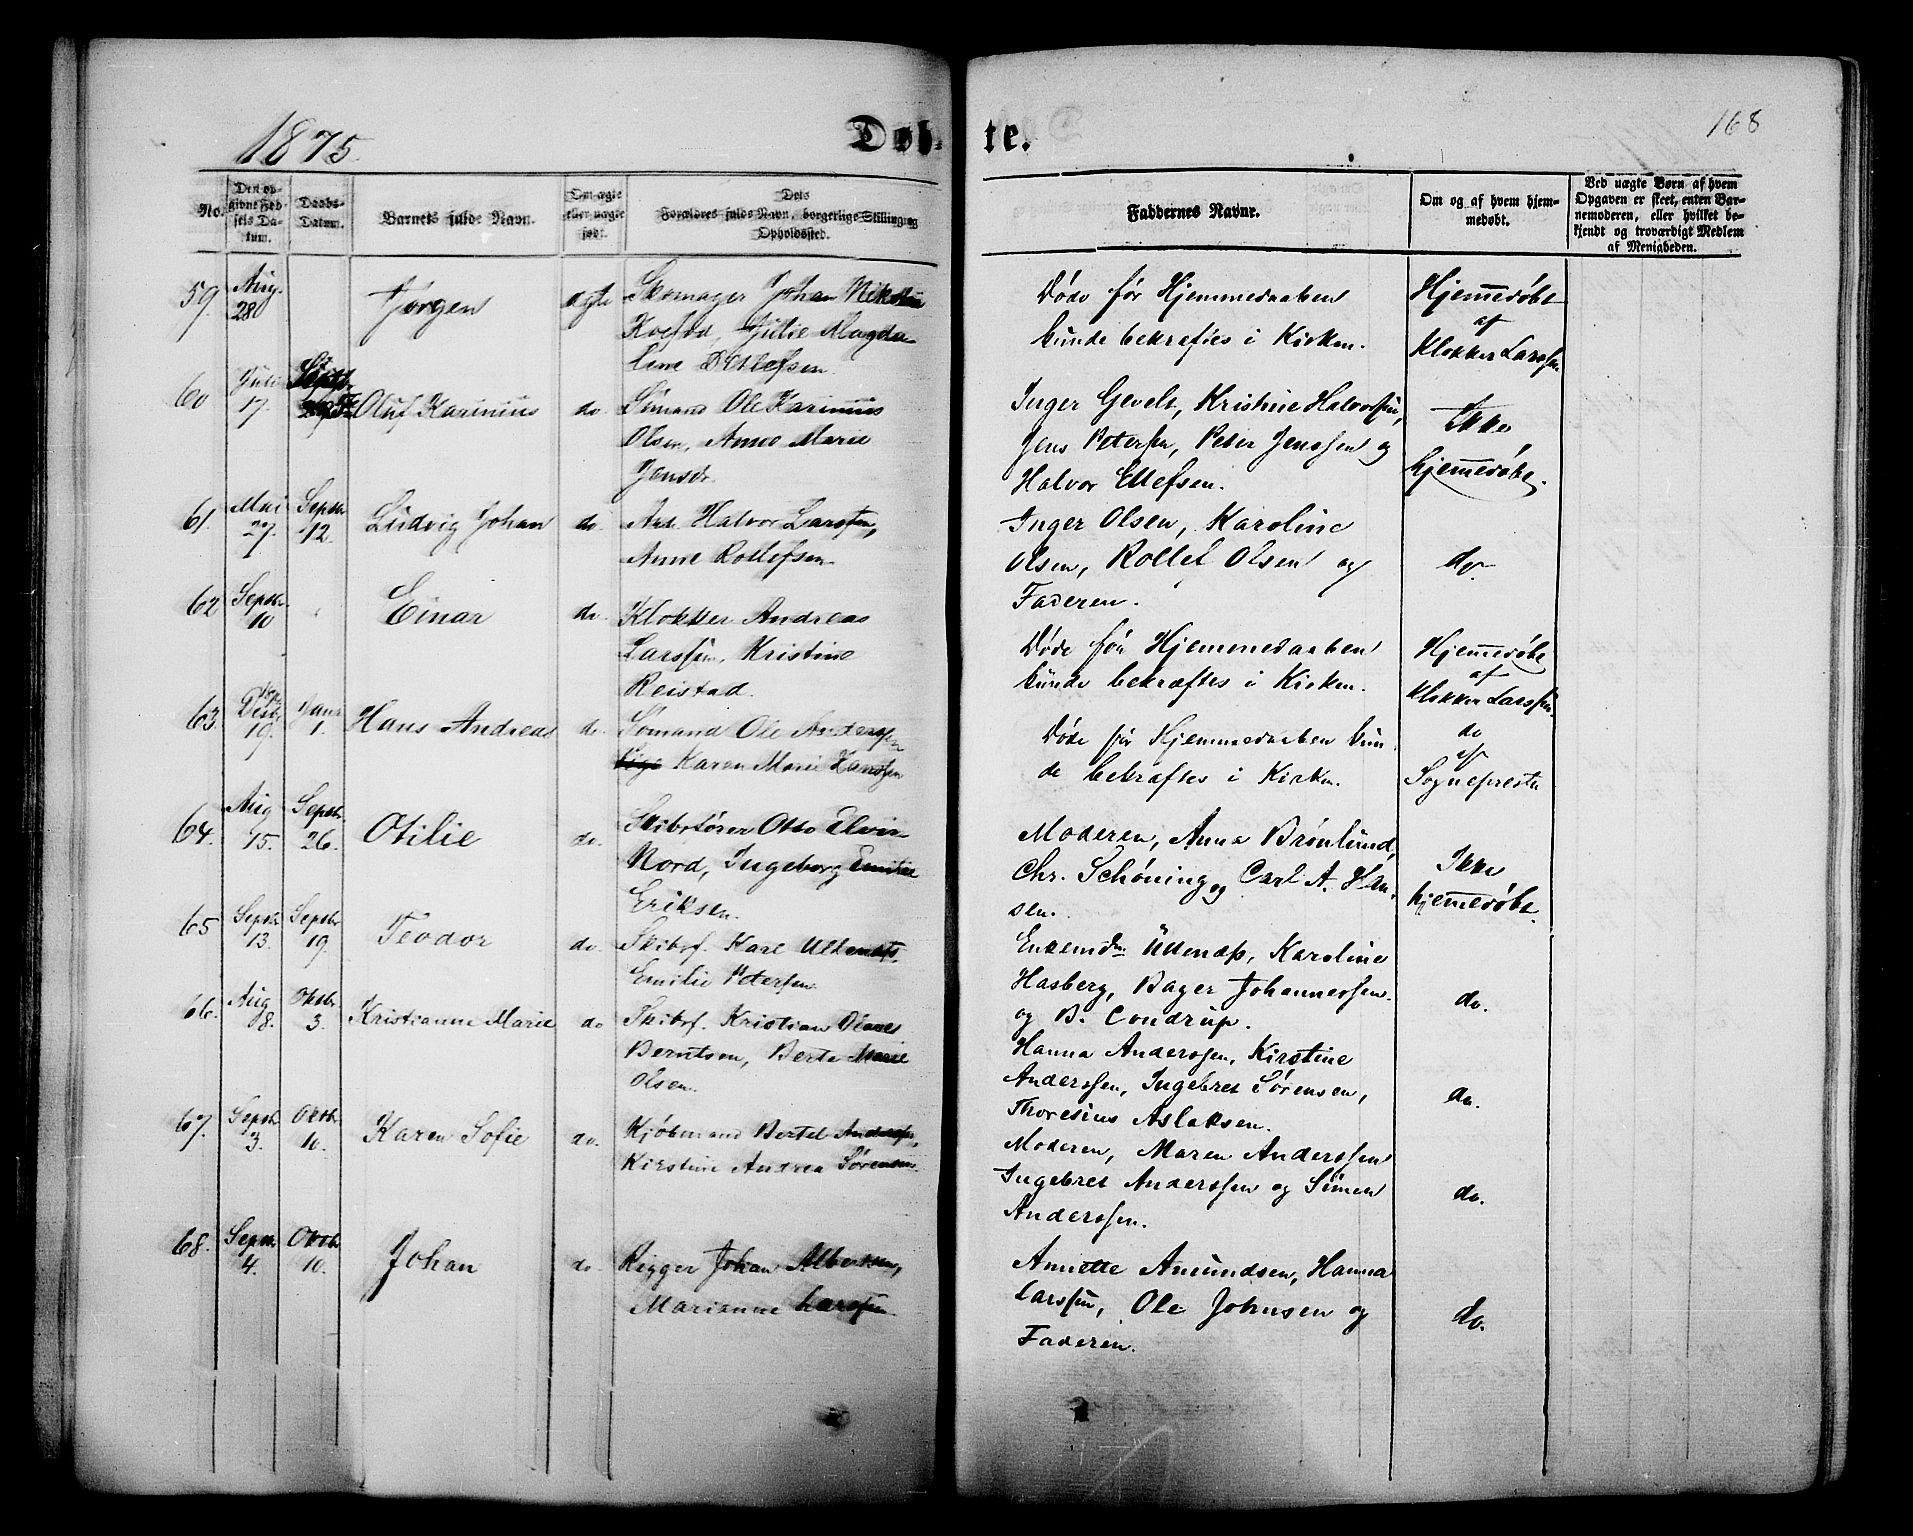 1875.
Døb-
te.
168
No.
Den opgivne Fødsels Datum.
Daabs-Datum.
Barnets fulde Navn.
Om ægte eller uægte født.
Dets Forældres fulde Navn, borgerlige Stilling og Opholdssted.
Faddernes Navne.
Om og af hvem hjemmedøbt.
Ved uægte Børn af hvem Opgaven er skeet, enten Barnemoderen, eller hvilket bekjendt og troværdigt Medlem af Menigheden.
59. Aug. 28 Jørgen ægte Skomager Johan Nikolai
Koefod, Julie Magda-
lene Ditlefsen
Døde før Hjemmedaaben
kunde bekræftes i Kirken.
Hjemmedøbt
af
Klokker Larssen
60 Juli 17. Oluf Karinius do Sømand Ole Karinius
Olsen, Anne Marie
Jensdr.
Inger Gevelt, Kristine Halvorsen,
Jens Petersen, Peter Jenssen og
Halvor Ellefsen.
Ikke
hjemmedøbt.
61. Mai 27. Septbr 12. Ludvig Johan do Arb. Halvor Larssen,
Anne Rollefsen
Inger Olsen, Karoline
Olsen, Rollef Olsen og
Faderen.
do.
62 Septbr. 10 Einar do. Klokker Andreas
Larssen, Kristine
Reistad.
Døde før Hjemmedaaben
kunde bekræftes i Kirken.
Hjemmedøbt
af
Klokker Larssen.
63. Decbr 19. Januar 1. Hans Andreas do. Sømand Ole Anderssen
Karen Marie Hanssen
Døde før Hjemmedaaben kun-
de bekræftes i Kirken.
do
af
Sognepresten
64. Aug 15. Septbr 26. Otilie do. Skibsfører Otto Elvin
Nord, Ingeborg Emilie
Eriksen.
Moderen, Anna Brønlund,
Chr. Schøning og Carl A. Han-
sen.
Ikke
hjemmedøbt.
65 Septbr 13. Septbr 19. Teodor do Skibsf. Karl
Emilie Petersen
Enkemdm Udenæs, Karoline
Hasberg, Bager Johannessen
og B. Condrup.
do.
66. Aug 8. Oktbr 3. Kristianne Marie do Skibsf. Kristian
Berntsen, Berte Marie
Olsen.
Hanna Anderssen, Kirstine
Anderssen, Ingebret Sørensen,
Thoresius Aslaksen.
do.
67. Septbr 3. Oktbr 10. Karen Sofie do. Kjøbmand Bertel Anderssen,
Kirstine Andrea Sørensen
Moderen, Maren Anderssen
Ingebret Anderssen og Simen
Anderssen.
do.
68. Septbr 4. Oktbr 10. Johan do. Rigger Johan Albertsen,
Marianne Larssen
Annette Amundsen, Hanna
Larssen, Ole Johnsen og
Faderen.
do.